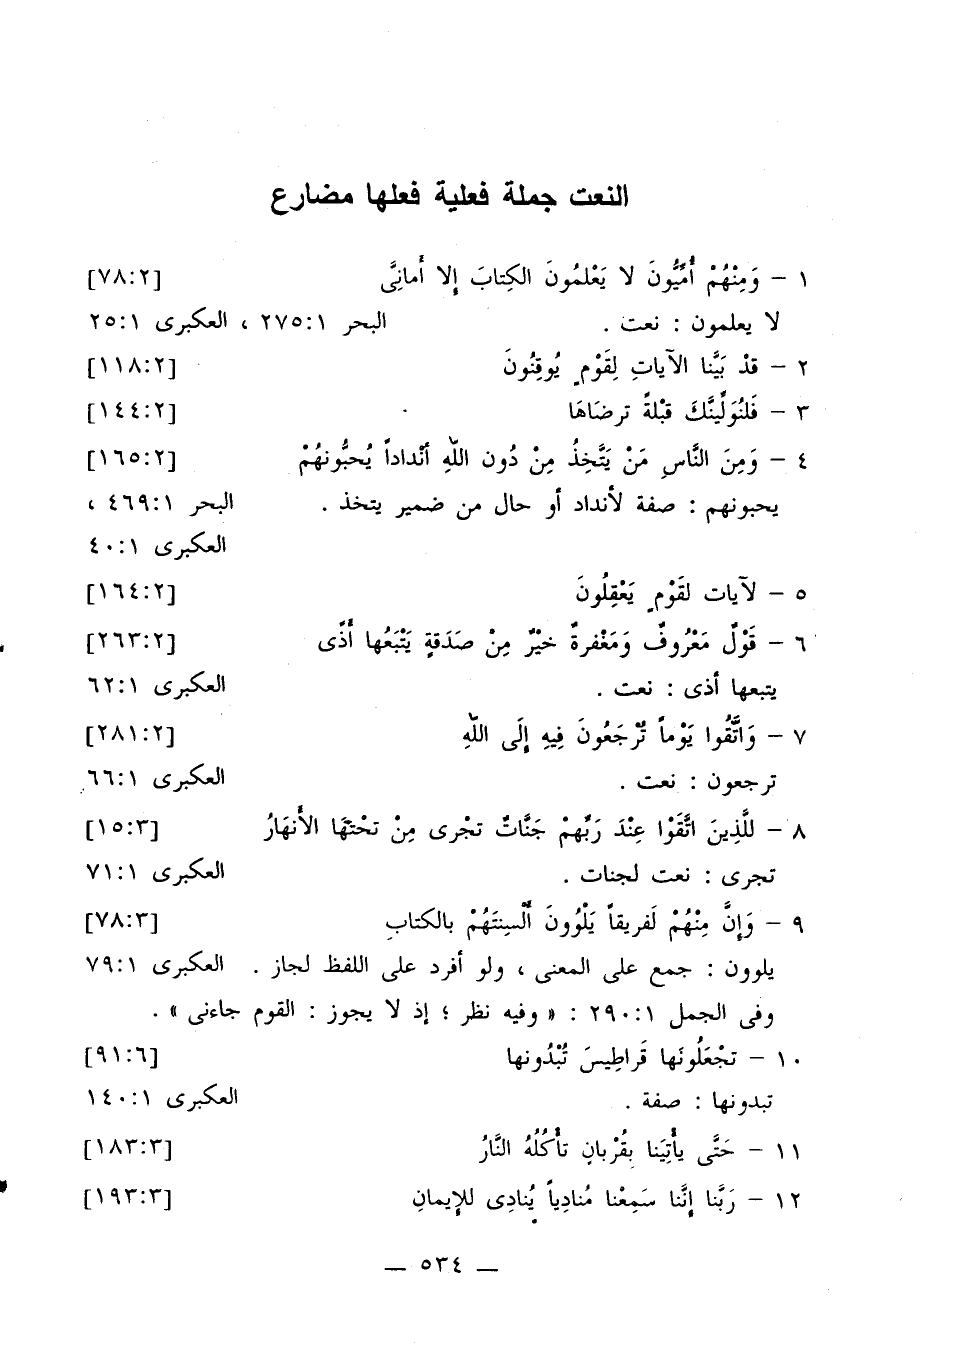 النعت جملة فعلية فعلها مضارع
١ – وَمِنْهُمْ أُمِّيُّونَ لا يَعْلمُونَ الكِتابَ إلا أَمانِىَّ [٧٨:٢]
لا يعلمون : نعت . البحر ٢٧٥:١ ، العكبرى ٢٥:١
٢ – قدْ بَيَّنا الآياتِ لِقَوْمٍ يُوقِنُونَ [١١٨:٢]
٣ – فَلنُوَلِّينَّكَ قبْلةً ترضَاهَا [١٤٤:٢]
٤ – وَمِنَ النَّاسِ مَنْ يَتَّخِذُ مِنْ دُون اللّهِ أنْداداً يُحبُّونهُمْ [١٦٥:٢]
يحبونهم : صفة لأنداد أو حال من ضمير يتخذ . البحر ٤٦٩:١ ،
العكبرى ٤٠:١
٥ – لآيات لقَوْمٍ يَعْقِلُونَ [١٦٤:٢]
٦ – قَوْلٌ مَعْرُوفٌ وَمَغْفرةٌ خيْرٌ مِنْ صَدَقةٍ يَتْبَعُها أَذًى [٢٦٣:٢]
يتبعها أذى : نعت . العكبرى ٦٢:١
٧ – وَاتَّقُوا يَوْماً تُرْجَعُونَ فِيهِ إلَى اللّهِ [٢٨١:٢]
ترجعون : نعت . العكبرى ٦٦:١
٨ – للَّذِينَ اتَّقَوْا عِنْدَ رَبِّهمْ جَنَّاتٌ تجْرى مِنْ تحْتهَا الأَنهَارُ [١٥:٣]
تجرى : نعت لجنات . العكبرى ٧١:١
٩ – وَإنَّ مِنْهُمْ لَفريقاً يَلْوُونَ أَلْسِنتَهُمْ بالكتابِ [٧٨:٣]
يلوون : جمع على المعنى ، ولو أفرد على اللفظ لجاز . العكبرى ٧٩:١
وفى الجمل ٢٩٠:١ : « وفيه نظر ؛ إذ لا يجوز : القوم جاءنى » .
١٠ – تجْعَلُونَها قَراطِيسَ تُبْدُونها [٩١:٦]
تبدونها : صفة . العكبرى ١٤٠:١
١١ – حَتَّى يأْتِيَنا بِقُرْبانٍ تأْكُلُهُ النَّارُ [١٨٣:٣]
١٢ – رَبَّنا إنَّنا سَمِعْنا مُنادِياً يُنادِى للإيمانِ [١٩٣:٣]
— ٥٣٤ —